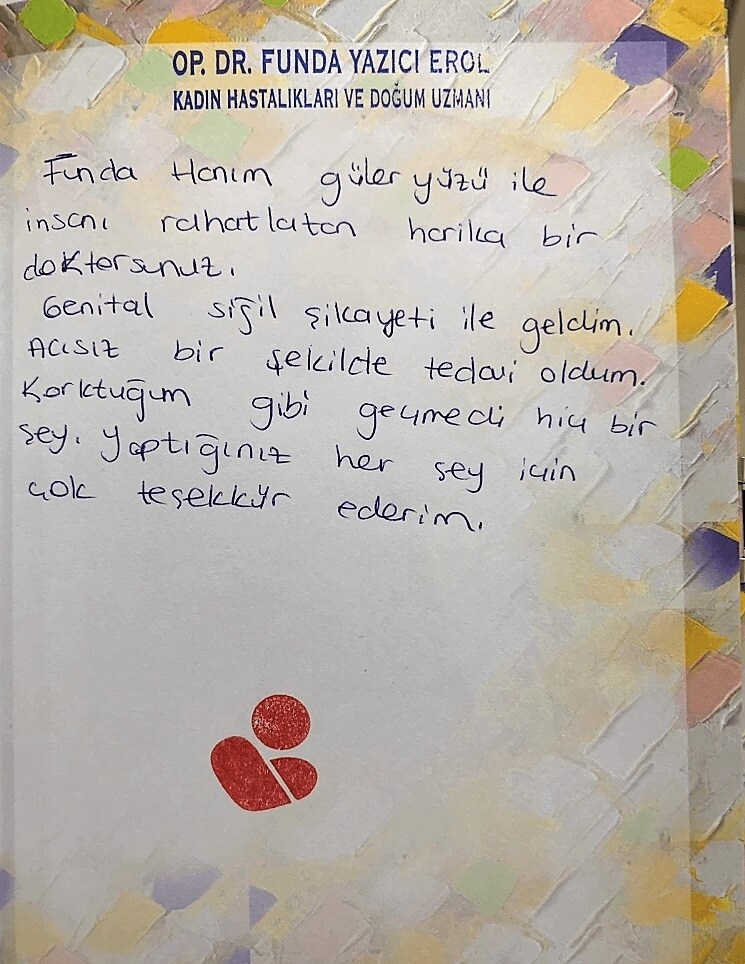 OP. DR. FUNDA YAZICI EROL
KADIN HASTALIKLARI VE DOĞUM UZMANI
Funda Hanım güler yüzü ile
insanı rahatlatan harika bir
doktorsunuz.
Genital siğil şikayeti ile geldim.
Acısız bir şekilde tedavi oldum.
Korktuğum gibi geçmedi hiç bir
şey. Yaptığınız her şey için
çok teşekkür ederim.